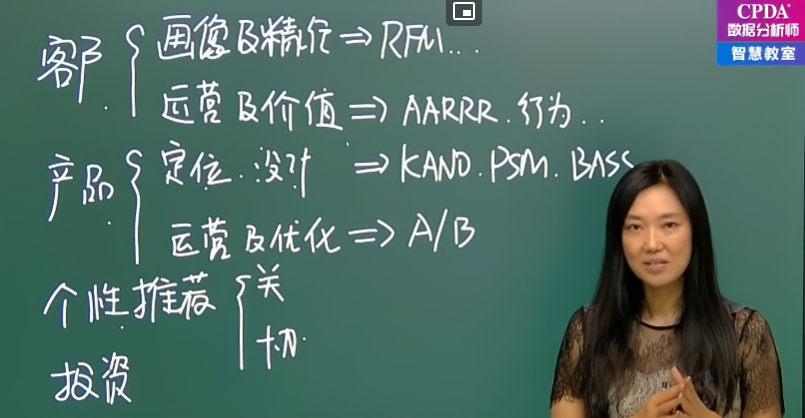 CPDA®
数据分析师
智慧教室
客户
画像及精准⇒RFM...
运营及价值⇒AARRR.行为..
产品
定位.设计 ⇒KANO.PSM.BASS
运营及优化⇒A/B
个性推荐
关
协.
投资